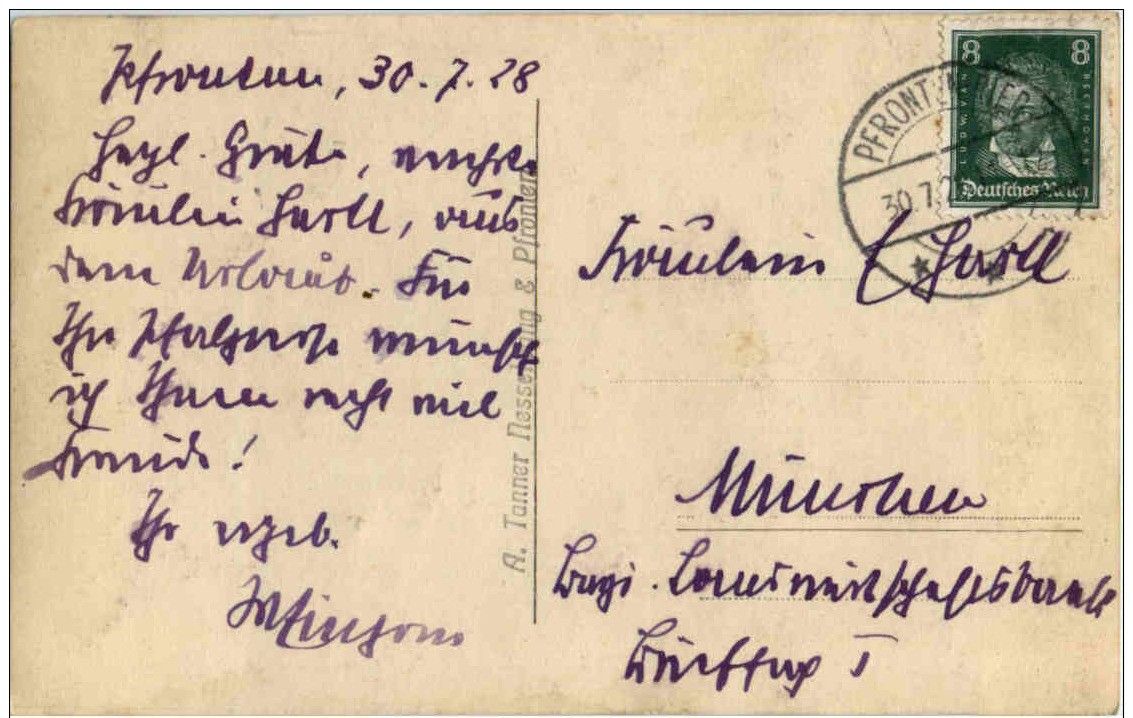 Pfronten, 30.7.28
Herzl. Grüße, verehrtes
Fräulein Hartl, aus
dem Urlaub. Für
Ihre Pfalzreise wünsch
ich Ihnen recht viel
Freude!
Ihr ergeb.
A. Tanner Nesselwang & Pfronten
8 8
LUDW. VAN BEETHOVEN
Deutsches Reich
PFRONTEN
30.7.2
Fräulein E Hartl
München
Bayr. Landwirtschaftsbank
I